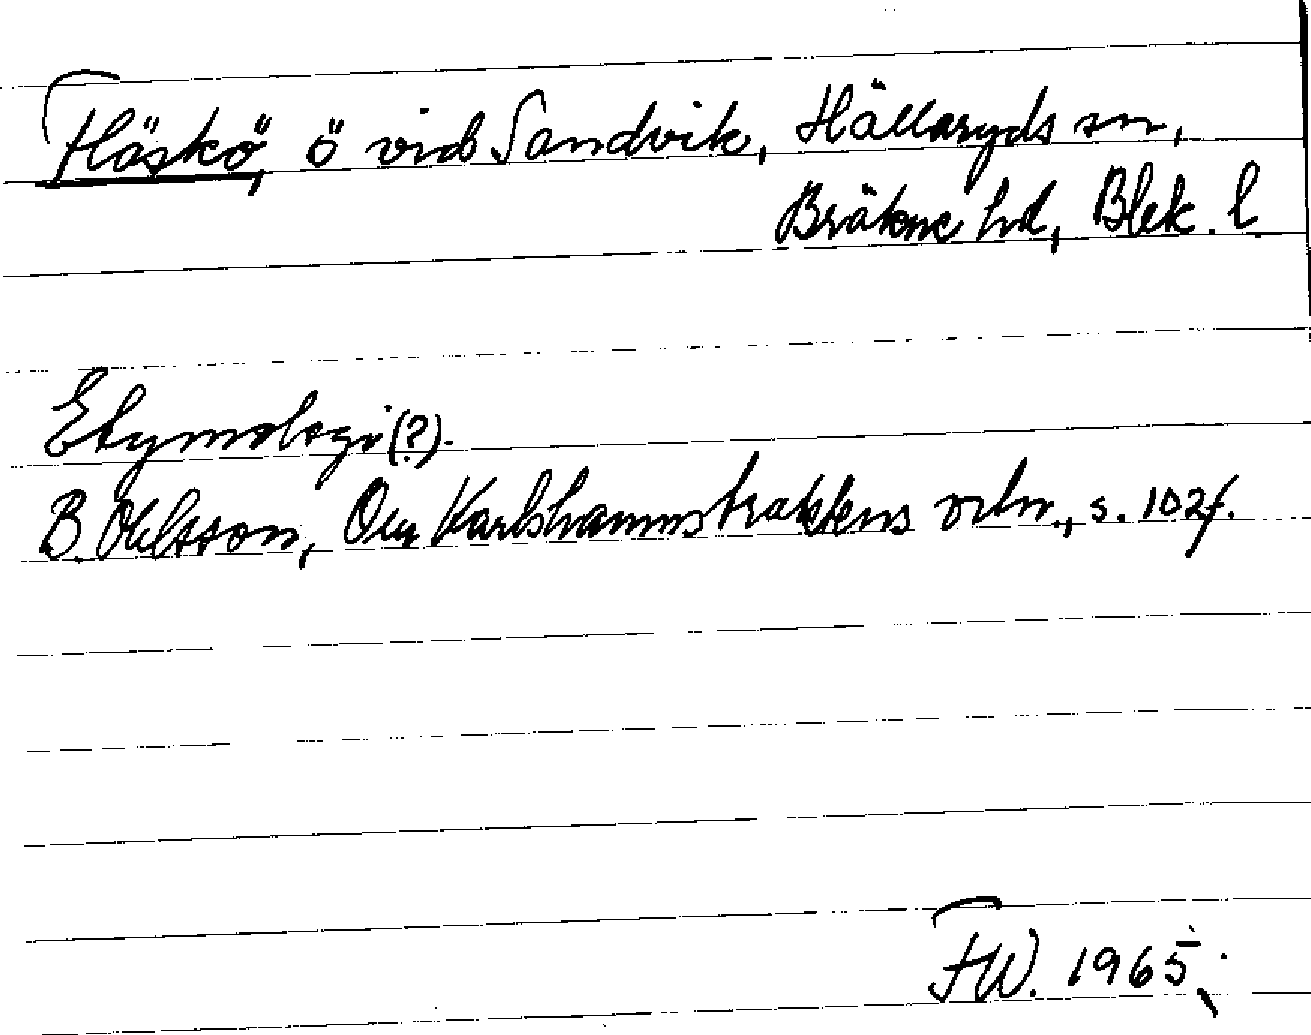 Fläskö, ö vid Sandvik, Hällaryds sn,
Bräkne hd, Blek. l.
Etymologi (?).
B. Ohlsson, Om Karlshamnstraktens ortn., s. 102f.
FW. 1965.